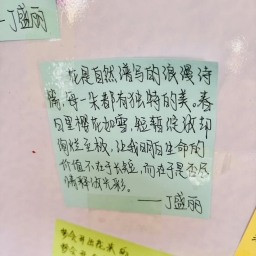 —丁盛丽
花是自然谱写的浪漫诗
篇,每一朵都有独特的美。春
日里樱花如雪,短暂绽放却
绚烂至极,让我明白生命的
价值不在于长短,而在于是否尽
情释放光彩。
——丁盛丽